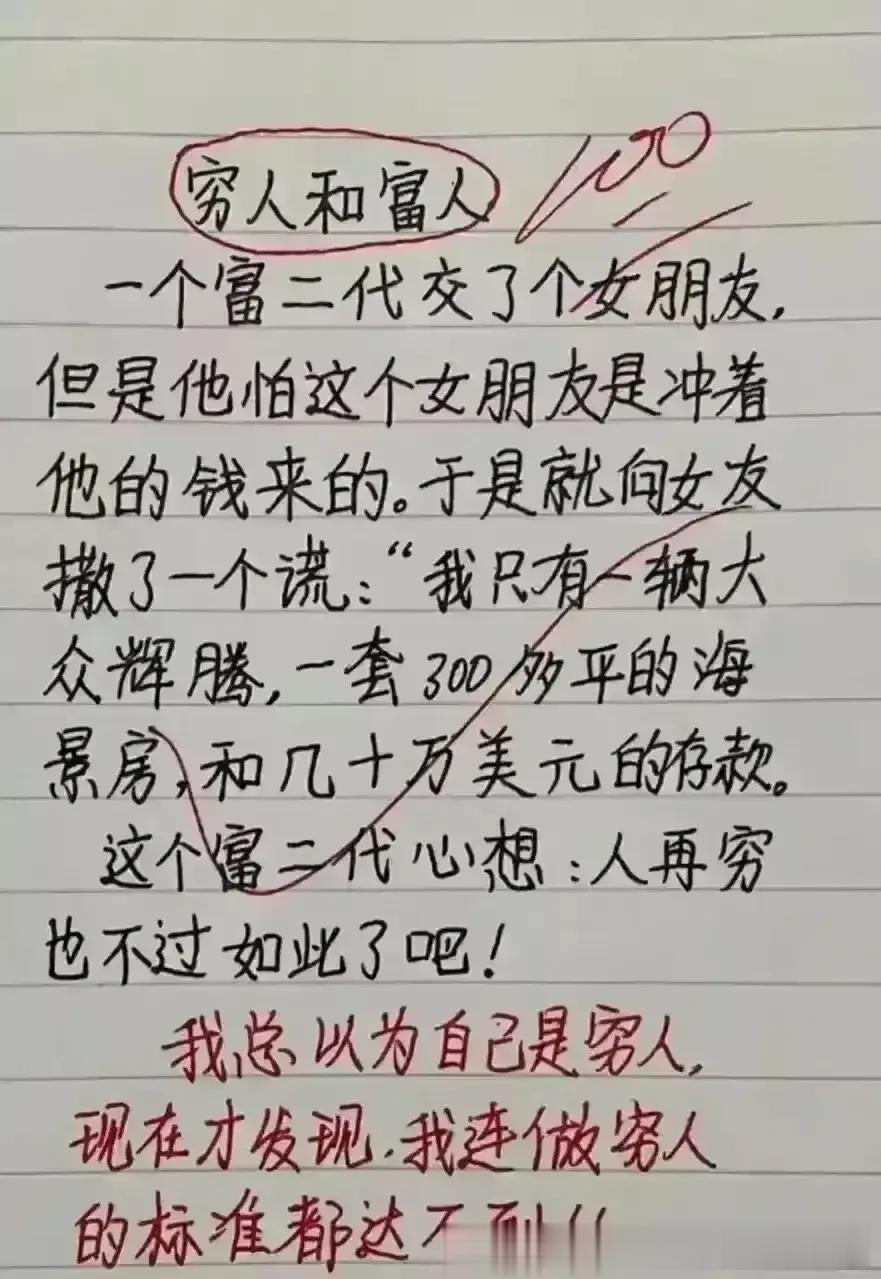 穷人和富人
100
一个富二代交了个女朋友,
但是他怕这个女朋友是冲着
他的钱来的。于是就向女友
撒了一个谎:“我只有一辆大
众辉腾,一套300多平的海
景房,和几十万美元的存款。
这个富二代心想:人再穷
也不过如此了吧!
我总以为自己是穷人,
现在才发现.我连做穷人
的标准都达